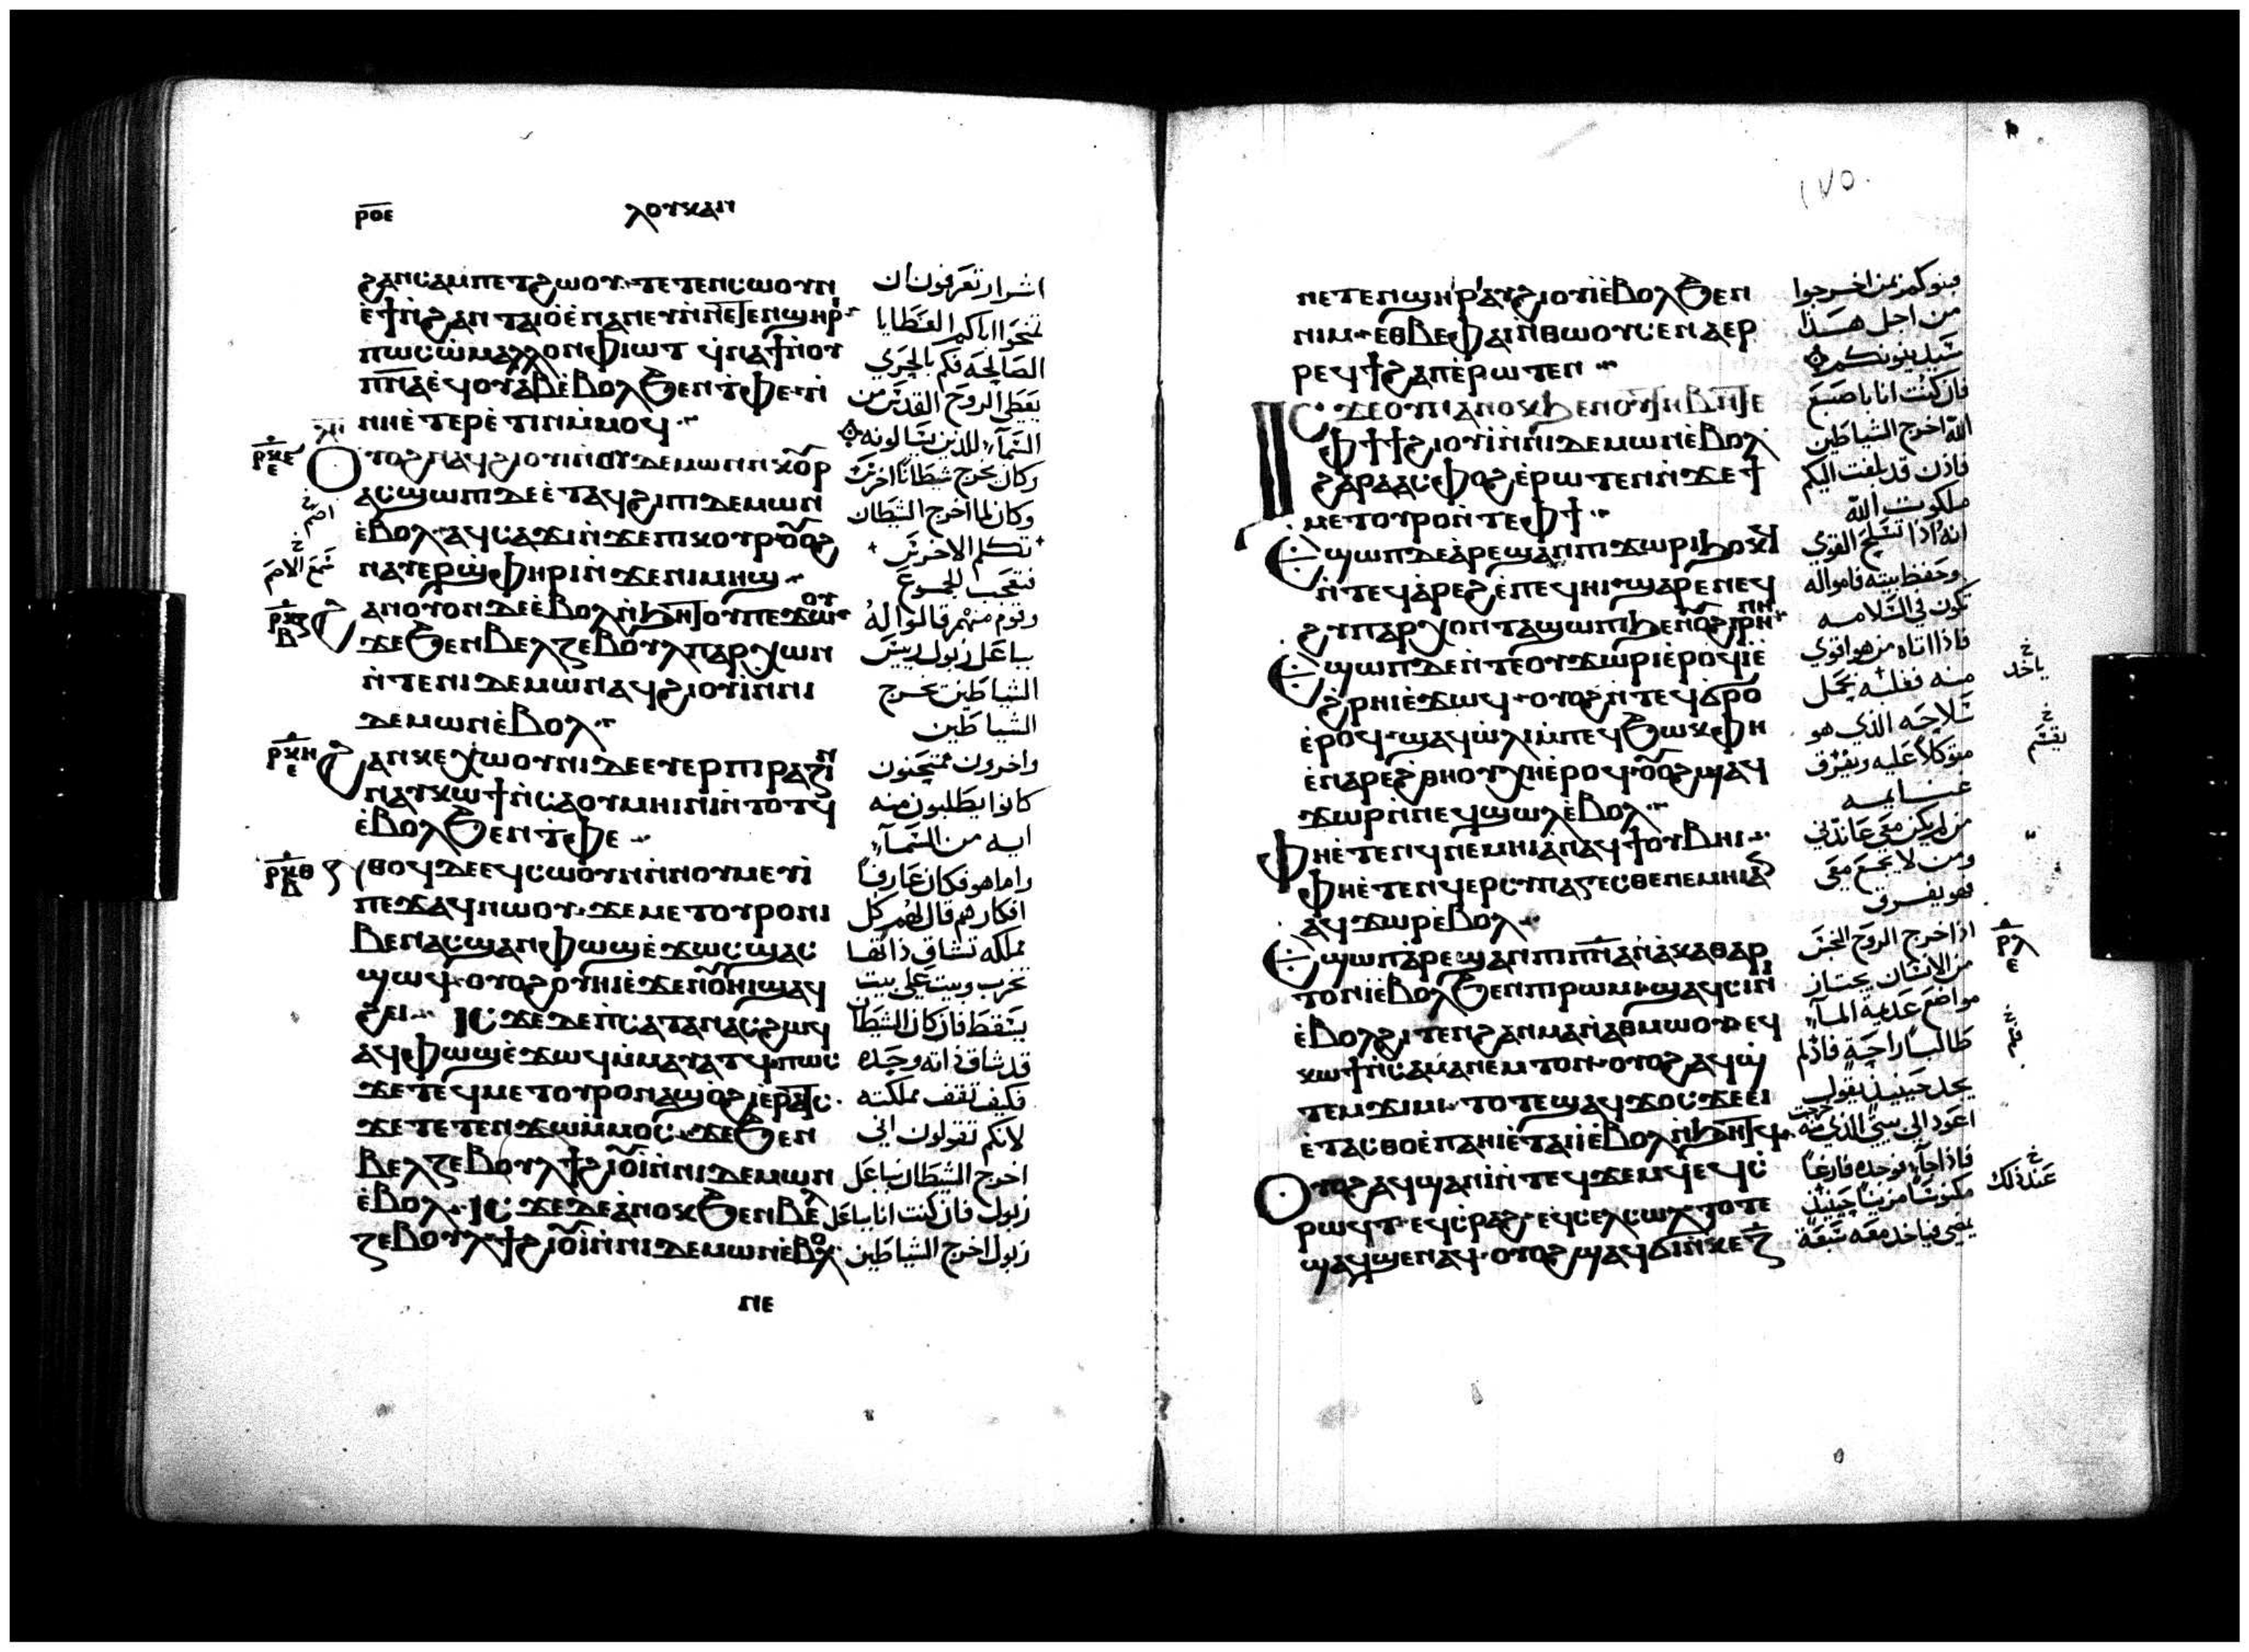 ⲣⲟⲉ
ⲗⲟⲩⲕⲁⲛ
ϩⲁⲛⲥⲁⲙⲡⲉⲧϩⲱⲟⲩ ⲧⲉⲧⲉⲛⲥⲱⲟⲩⲛ
ⲉ̀ϯⲛ̀ϩⲁⲛⲧⲁⲓⲟ ⲉ̀ⲛⲁⲛⲉⲩ ⲛ̀ⲛⲉⲧⲉⲛϣⲏⲣ
ⲡⲱⲥ ⲱ̀ⲙⲁⲗⲗⲟⲛ ⲫⲓⲱⲧ ϥ̀ⲛⲁϯ ⲛ̀ⲟⲩ
ⲡ̅ⲛ̅ⲁ̅ ⲉ̀ϥⲟⲩⲁⲃ ⲉ̀ⲃⲟⲗ ϧⲉⲛ ⲧ̀ⲫⲉ ⲛ̀
ⲛⲏⲉ̀ⲧⲉⲣⲉ̀ⲧⲓⲛ ⲙ̀ⲙⲟϥ
ⲟⲩⲟϩ ⲛⲁϥϩⲓⲟⲩⲓ̀ ⲛ̀ⲟⲩⲇⲉⲙⲱⲛ ⲛ̀ⲕⲟⲩⲣ
ⲁⲥϣⲱⲡⲓ ⲇⲉ ⲉ̀ⲧⲁϥϩⲓ ⲡⲓⲇⲉⲙⲱⲛ
ⲉ̀ⲃⲟⲗ ⲁϥⲥⲁϫⲓ ⲛ̀ϫⲉ ⲡⲓⲕⲟⲩⲣ ⲟⲩⲟϩ
ⲛⲁⲩⲉⲣϣⲫⲏⲣⲓ ⲛ̀ϫⲉ ⲛⲓⲙⲏϣ
ϩⲁⲛⲟⲩⲟⲛ ⲇⲉ ⲉ̀ⲃⲟⲗ ⲛ̀ϧⲏⲧⲟⲩ ⲡⲉϫⲱⲟⲩ
ϫⲉ ϧⲉⲛ ⲃⲉⲗⲍⲉⲃⲟⲩⲗ ⲡⲁⲣⲭⲱⲛ
ⲛ̀ⲧⲉ ⲛⲓⲇⲉⲙⲱⲛ ⲁϥϩⲓⲟⲩⲓ̀ ⲛ̀ⲛⲓ
ⲇⲉⲙⲱⲛ ⲉ̀ⲃⲟⲗ
ϩⲁⲛⲕⲉⲭⲱⲟⲩⲛⲓ ⲇⲉ ⲉⲩⲉⲣⲡⲓⲣⲁⲍⲓⲛ
ⲛⲁⲩⲕⲱϯ ⲛ̀ⲥⲁ ⲟⲩⲙⲏⲓⲛⲓ ⲛ̀ⲧⲟⲧϥ
ⲉ̀ⲃⲟⲗ ϧⲉⲛ ⲧ̀ⲫⲉ
ⲛ̀ⲑⲟϥ ⲇⲉ ⲉϥⲥⲱⲟⲩⲛ ⲛ̀ⲛⲟⲩⲙⲉⲩⲓ̀
ⲡⲉϫⲁϥ ⲛⲱⲟⲩ ϫⲉ ⲙⲉⲧⲟⲩⲣⲟ ⲛⲓ
ⲃⲉⲛ ⲁⲥϣⲁⲛⲫⲱϣ ⲉ̀ϫⲱⲥ ϣⲁⲥ
ϣⲱϥ ⲟⲩⲟϩ ⲟⲩⲏⲓ ⲉ̀ϫⲉⲛ ⲟⲩⲏⲓ ϣⲁϥ
ϩⲉⲓ ⲓⲥϫⲉ ⲇⲉ ⲡ̀ⲥⲁⲧⲁⲛⲁⲥ ϩⲱϥ
ⲁϥⲫⲱϣ ⲉ̀ϫⲱϥ ⲙ̀ⲙⲁⲩⲁⲧϥ ⲡⲱⲥ
ϫⲉ ⲧⲉϥⲙⲉⲧⲟⲩⲣⲟ ⲛⲁϣⲟ̀ϩⲓ ⲉ̀ⲣⲁⲧⲥ
ϫⲉ ⲧⲉⲧⲉⲛϫⲱ ⲙ̀ⲙⲟⲥ ϫⲉ ϧⲉⲛ
ⲃⲉⲗⲍⲉⲃⲟⲩⲗ ϯϩⲓⲟⲩⲓ̀ ⲛ̀ⲛⲓⲇⲉⲙⲱⲛ
ⲉ̀ⲃⲟⲗ ⲓⲥϫⲉ ⲇⲉ ⲁ̀ⲛⲟⲕ ϧⲉⲛ ⲃⲉⲗ
ⲍⲉⲃⲟⲩⲗ ϯϩⲓⲟⲩⲓ̀ ⲛ̀ⲛⲓⲇⲉⲙⲱⲛ ⲉ̀ⲃⲟⲗ
ⲛⲉ
اشرار تعرفون ان
تمنحوا ابناكم العطايا
الصالحه فكم بالحري
يعطي الروح القدس من
السماء للذين يسالونه
وكان يخرج شيطانا اخرس
وكان لما اخرج الشيطان
تكلم الاخرس
فتعجب الجموع
وقوم منهم قالوا له
بباعل زبول رييس
الشياطين يخرج
الشياطين
واخرون ممتحنون
كانوا يطلبون منه
ايه من السماء
واما هو فكان عارفا
افكارهم قال لهم كل
مملكه تنشاق ذاتها
تخرب وبيت على بيت
يسقط فان كان الشيطان
قد شاق ذاته وحده
فكيف تقف مملكته
لانكم تقولون اني
اخرج الشيطان بباعل
زبول فان كنت انا بباعل
زبول اخرج الشياطين
١٧٥
ⲛⲉⲧⲉⲛϣⲏⲣⲓ ⲁⲩϩⲓⲟⲩⲓ̀ ⲉ̀ⲃⲟⲗ ϧⲉⲛ
ⲛⲓⲙ ⲉⲑⲃⲉ ⲫⲁⲓ ⲛ̀ⲑⲱⲟⲩ ⲥⲉⲛⲁⲉⲣ
ⲣⲉϥϯϩⲁⲡ ⲉ̀ⲣⲱⲧⲉⲛ
ⲓⲥϫⲉ ⲇⲉ ⲁⲛⲟⲕ ϧⲉⲛ ⲟⲩⲧⲏⲃ ⲛ̀ⲧⲉ
ⲫϯ ϯϩⲓⲟⲩⲓ̀ ⲛ̀ⲛⲓⲇⲉⲙⲱⲛ ⲉ̀ⲃⲟⲗ
ϩⲁⲣⲁ ⲁⲥⲫⲟϩ ⲉ̀ⲣⲱⲧⲉⲛ ⲛ̀ϫⲉ ϯ
ⲙⲉⲧⲟⲩⲣⲟ ⲛ̀ⲧⲉ ⲫϯ
ⲉϣⲱⲡ ⲇⲉ ⲁ̀ⲣⲉϣⲁⲛ ⲡⲓϫⲱⲣⲓ ϧⲟⲕϥ
ⲛ̀ⲧⲉϥⲁ̀ⲣⲉϩ ⲉ̀ⲡⲉϥⲏⲓ ϣⲁⲣⲉ ⲛⲉϥ
ϩⲩⲡⲁⲣⲭⲟⲛⲧⲁ ϣⲱⲡⲓ ϧⲉⲛ ⲟⲩϩⲓⲣⲏⲛⲏ
ⲉϣⲱⲡ ⲇⲉ ⲛ̀ⲧⲉ ⲟⲩϫⲱⲣⲓ ⲉ̀ⲣⲟϥ ⲓ̀ ⲉ̀
ϩ̀ⲣⲏⲓ ⲉ̀ϫⲱϥ ⲟⲩⲟϩ ⲛ̀ⲧⲉϥϭⲣⲟ
ⲉ̀ⲣⲟϥ ϣⲁϥⲱ̀ⲗⲓ ⲙ̀ⲡⲉϥϧⲱⲕ ⲫⲏ
ⲉ̀ⲛⲁⲣⲉ ϩ̀ⲑⲏϥ ⲭⲏ ⲉ̀ⲣⲟϥ ⲟⲩⲟϩ ϣⲁϥ
ϫⲱⲣ ⲛ̀ⲛⲉϥϣⲱⲗ ⲉ̀ⲃⲟⲗ
ⲫⲏ ⲉ̀ⲧⲉⲛϥⲛⲉⲙⲏⲓ ⲁⲛ ⲁϥϯ ⲟⲩⲃⲏⲓ
ⲫⲏ ⲉ̀ⲧⲉⲛϥⲉⲣⲥⲩⲛⲁⲅⲉⲥⲑⲉ ⲛⲉⲙⲏⲓ ⲁⲛ
ⲁϥϫⲱⲣ ⲉ̀ⲃⲟⲗ
ⲉϣⲱⲡ ⲁ̀ⲣⲉϣⲁⲛ ⲡⲓⲡ̅ⲛ̅ⲁ̅ ⲛ̀ⲁ̀ⲕⲁⲑⲁⲣ
ⲧⲟⲛ ⲓ̀ ⲉ̀ⲃⲟⲗ ϧⲉⲛ ⲡⲓⲣⲱⲙⲓ ϣⲁϥⲥⲓⲛⲓ
ⲉ̀ⲃⲟⲗ ϩⲓⲧⲉⲛ ϩⲁⲛⲙⲁ ⲛ̀ⲁⲑⲙⲱⲟⲩ ⲉϥ
ⲕⲱϯ ⲛ̀ⲥⲁ ⲙⲁ ⲛ̀ⲉⲙⲧⲟⲛ ⲟⲩⲟϩ ⲁϥϣ
ⲧⲉⲙϫⲓⲙⲓ ⲧⲟⲧⲉ ϣⲁϥϫⲟⲥ ϫⲉ ⲉⲓ
ⲉ̀ⲧⲁⲥⲑⲟ ⲉ̀ⲡⲁⲏⲓ ⲉ̀ⲧⲁⲓⲓ̀ ⲉ̀ⲃⲟⲗ ⲛ̀ϧⲏⲧϥ
ⲟⲩⲟϩ ⲁϥϣⲁⲛⲓ̀ ⲛ̀ⲧⲉϥϫⲉⲙϥ ⲉϥⲥ̀
ⲣⲱϥⲧ ⲉϥⲥ̀ⲣⲁϩ ⲉϥⲥⲉⲗⲥⲱⲗ ⲧⲟⲧⲉ
ϣⲁϥϣⲉⲛⲁϥ ⲟⲩⲟϩ ϣⲁϥϭⲓ ⲛ̀ⲕⲉⲍ̅
فبنوكم بمن اخرجوا
من اجل هذا
فان كنت انا باصبع
الله اخرج الشياطين
فاذن قد بلغت اليكم
ملكوت الله
انه اذا تسلح القوي
وحفظ بيته فامواله
تكون في السلامه
فاذا اتاه من هو اقوي
منه فغلبه يحمل
سلاحه الذي هو
متوكلا عليه ويفرق
غنايمه
من لم يكن معي عاندني
ومن لا يجمع معي
فهو يفرق
اذا خرج الروح النجس
من الانسان يجتاز
مواضع عديمة الماء
طالبا راحة فاذ لم
يجد حينيذ يقول
اعود الى بيتي الذي خرجت منه
فاذا جاء فوجده فارغا
مكنوسا مزينا حينيذ
يمضي فياخذ معه سبعة
ياخذ
يقسم
عند ذلك